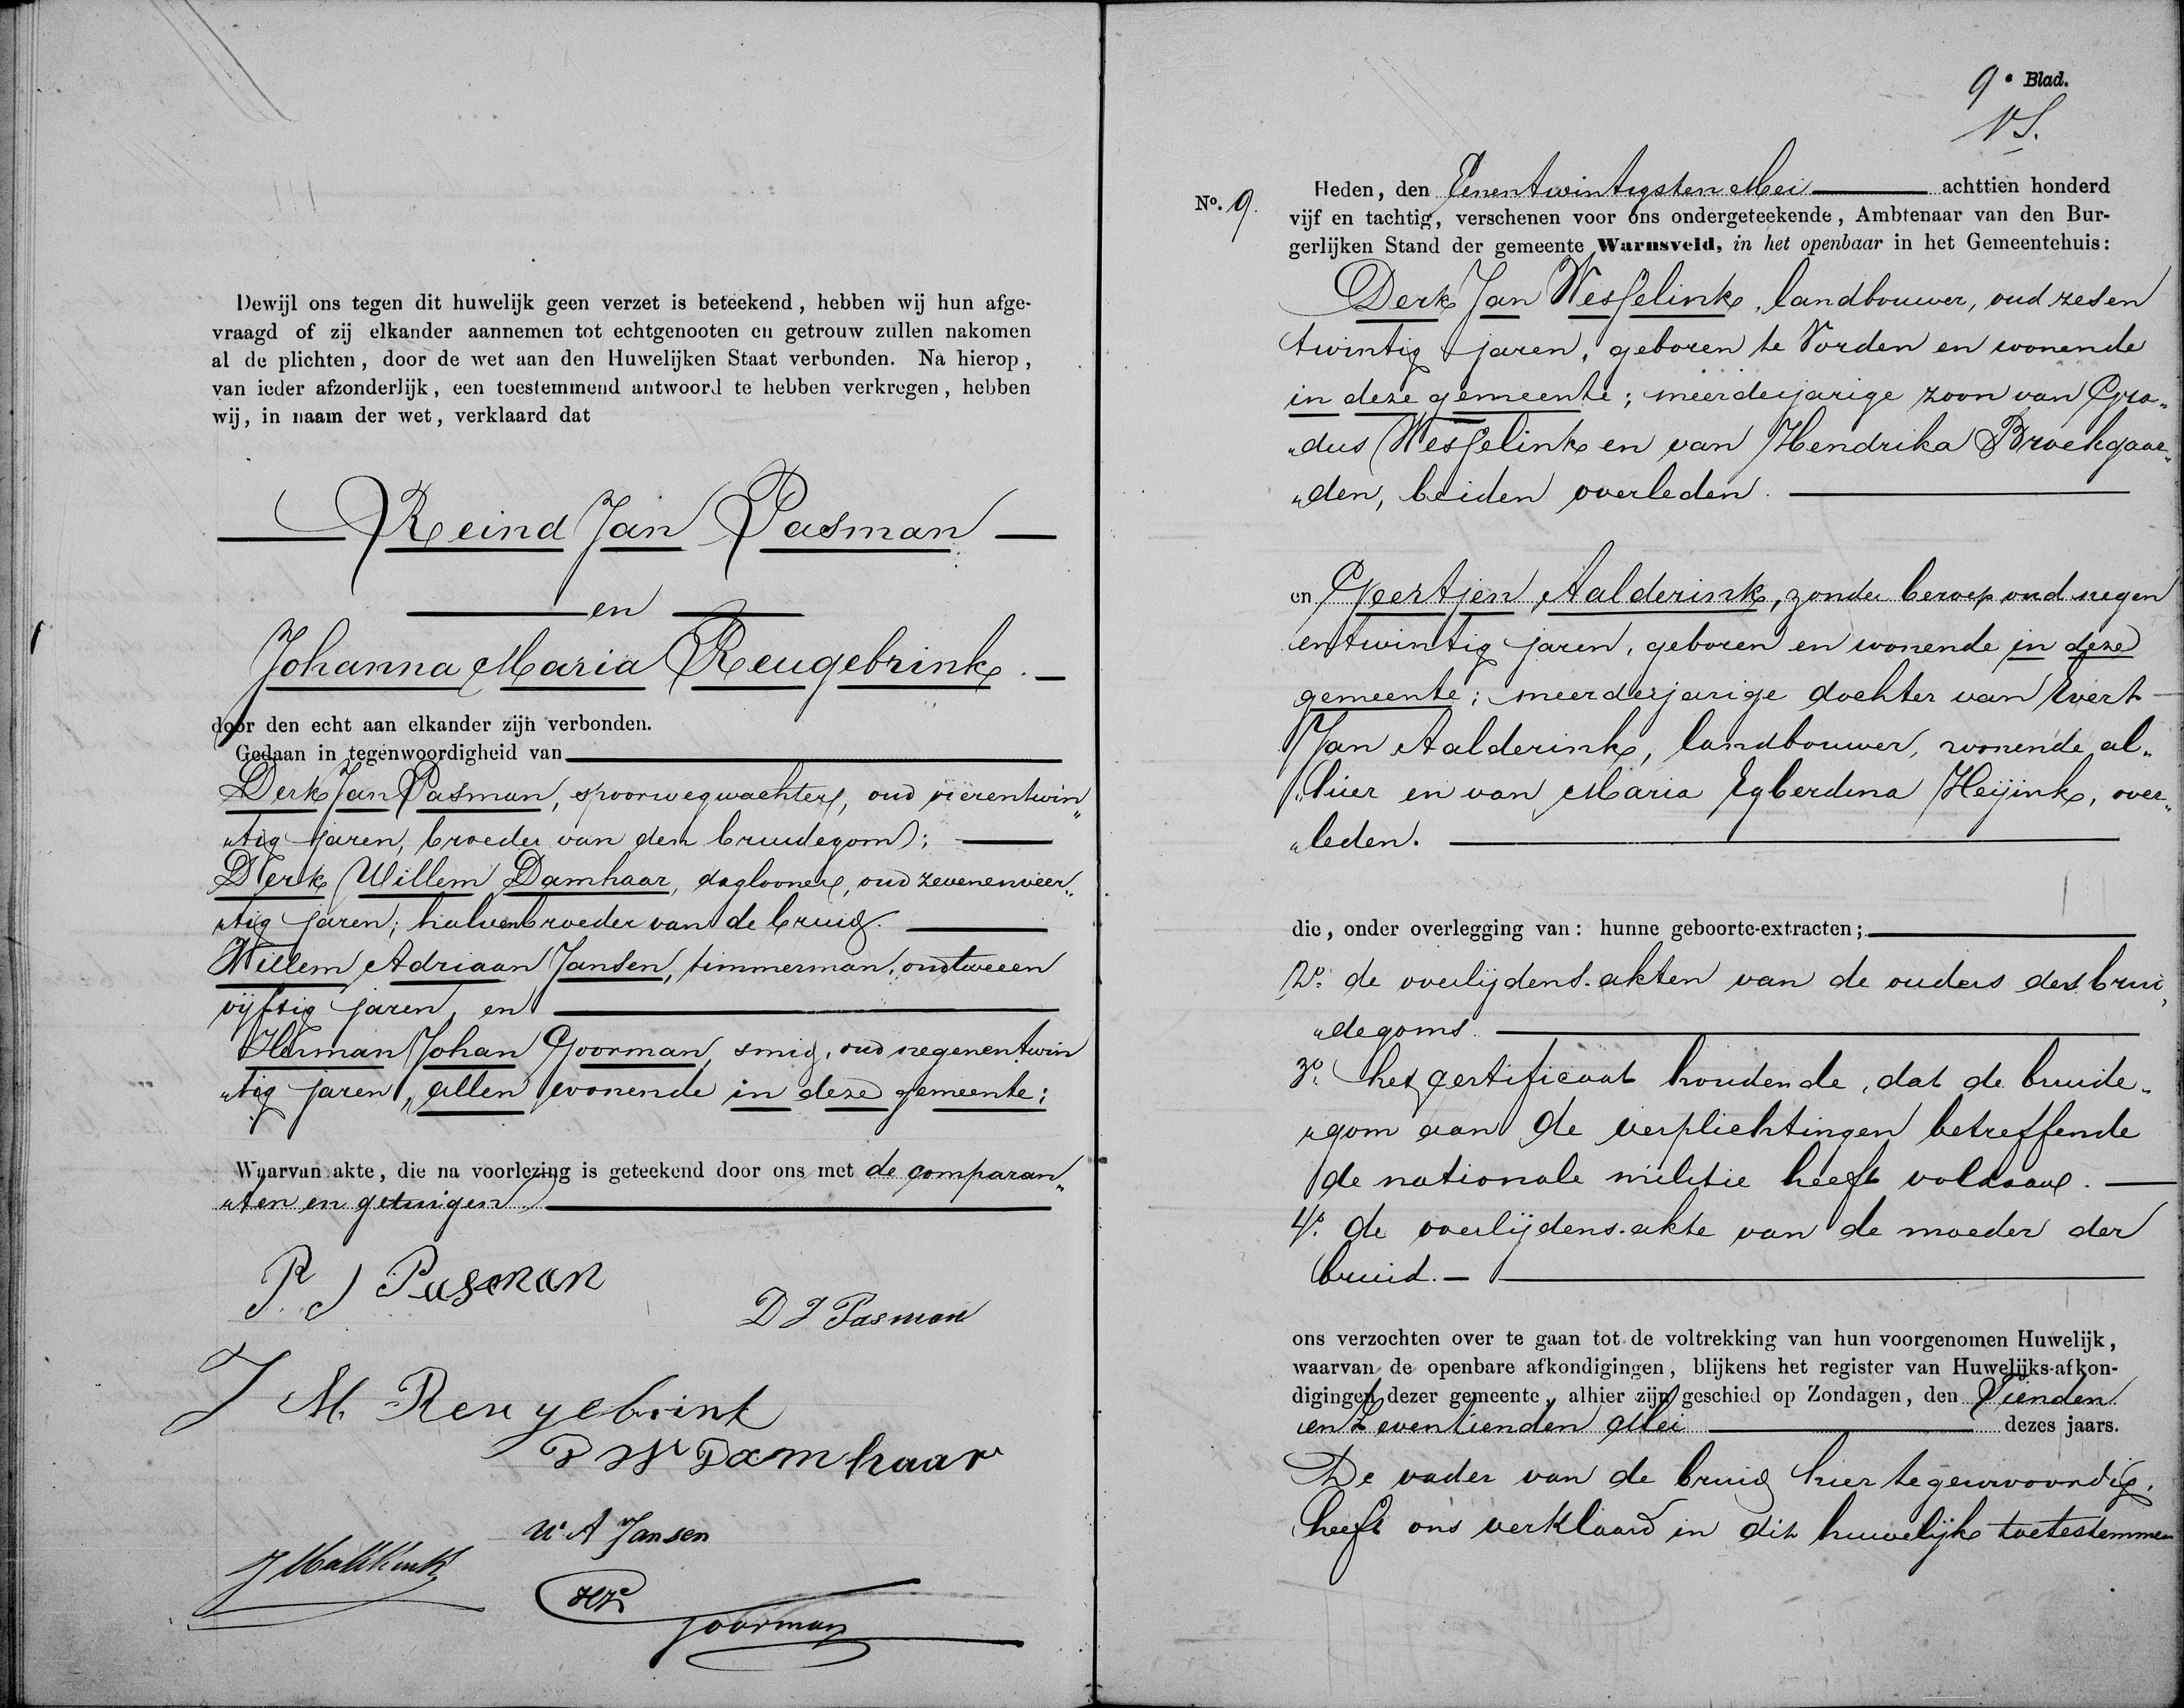 Dewijl ons tegen dit huwelijk geen verzet is beteekend, hebben wij hun afge-
vraagd of zij elkander aannemen tot echtgenooten en getrouw zullen nakomen
al de plichten, door de wet aan den Huwelijken Staat verbonden. Nà hierop,
van ieder afzonderlijk, een toestemmend antwoord te hebben verkregen, hebben
wij, in naam der wet, verklaard dat
Reind Jan Pasman
en
Johanna Maria Reugebrink.
door den echt aan elkander zijn verbonden.
Gedaan in tegenwoordigheid van
Derk Jan Pasman, spoorwegwachter, oud vierentwin„
„tig jaren, broeder van den bruidegom;
Derk Willem Damhaar, daglooner, oud zevenenveer„
„tig jaren; halvenbroeder van de bruid.
Willem Adriaan Jansen, timmerman, oud tweeen
vijftig jaren, en
Herman Johan Goorman, smid, oud negenentwin
„tig jaren, allen wonende in deze gemeente;
Waarvan akte, die na voorlezing is geteekend door ons met de comparan„
„ten en getuigen
R J Pasman
D J Pasman
J M. Reugebrink
D W Damhaar
W A Jansen
HJ Goorman
9e Blad.
No. 9.
Heden, den Eenentwintigsten Mei achttien honderd
vijf en tachtig, verschenen voor ons ondergeteekende, Ambtenaar van den Bur-
gerlijken Stand der gemeente Warnsveld, in het openbaar in het Gemeentehuis:
Derk Jan Wesselink, landbouwer, oud zesen
twintig jaren, geboren te Vorden en wonende
in deze gemeente; meerderjarige zoon van Gra„
„dus Wesselink en van Hendrika Broekgaar„
„den, beiden overleden.
en Geertjen Aalderink, zonder beroep oud negen
entwintig jaren, geboren en wonende in deze
gemeente; meerderjarige dochter van Evert
Jan Aalderink, landbouwer, wonende al„
„hier en van Maria Egberdina Heijink, over„
„leden.
die, onder overlegging van: hunne geboorte-extracten;
2o. de overlijdens-akten van de ouders des brui„
„degoms.
3o. het certificaat houdende, dat de bruide„
„gom aan de verplichtingen betreffende
de nationale militie heeft voldaan.
4o. de overlijdens-akte van de moeder der
bruid.
ons verzochten over te gaan tot de voltrekking van hun voorgenomen Huwelijk,
waarvan de openbare afkondigingen, blijkens het register van Huwelijks-afkon-
digingen dezer gemeente, alhier zijn geschied op Zondagen, den Tienden
en Zeventienden Mei dezes jaars.
De vader van de bruid hier tegenwoordig,
heeft ons verklaard in dit huwelijk toetestemmen